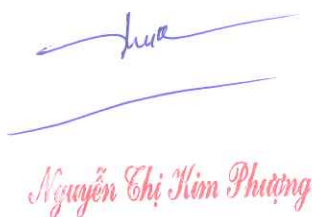 Nguyễn Thị Kim Phượng